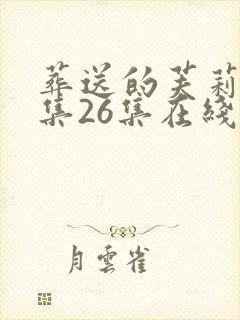 葬送的芙莉
集26集在线
月雲雀